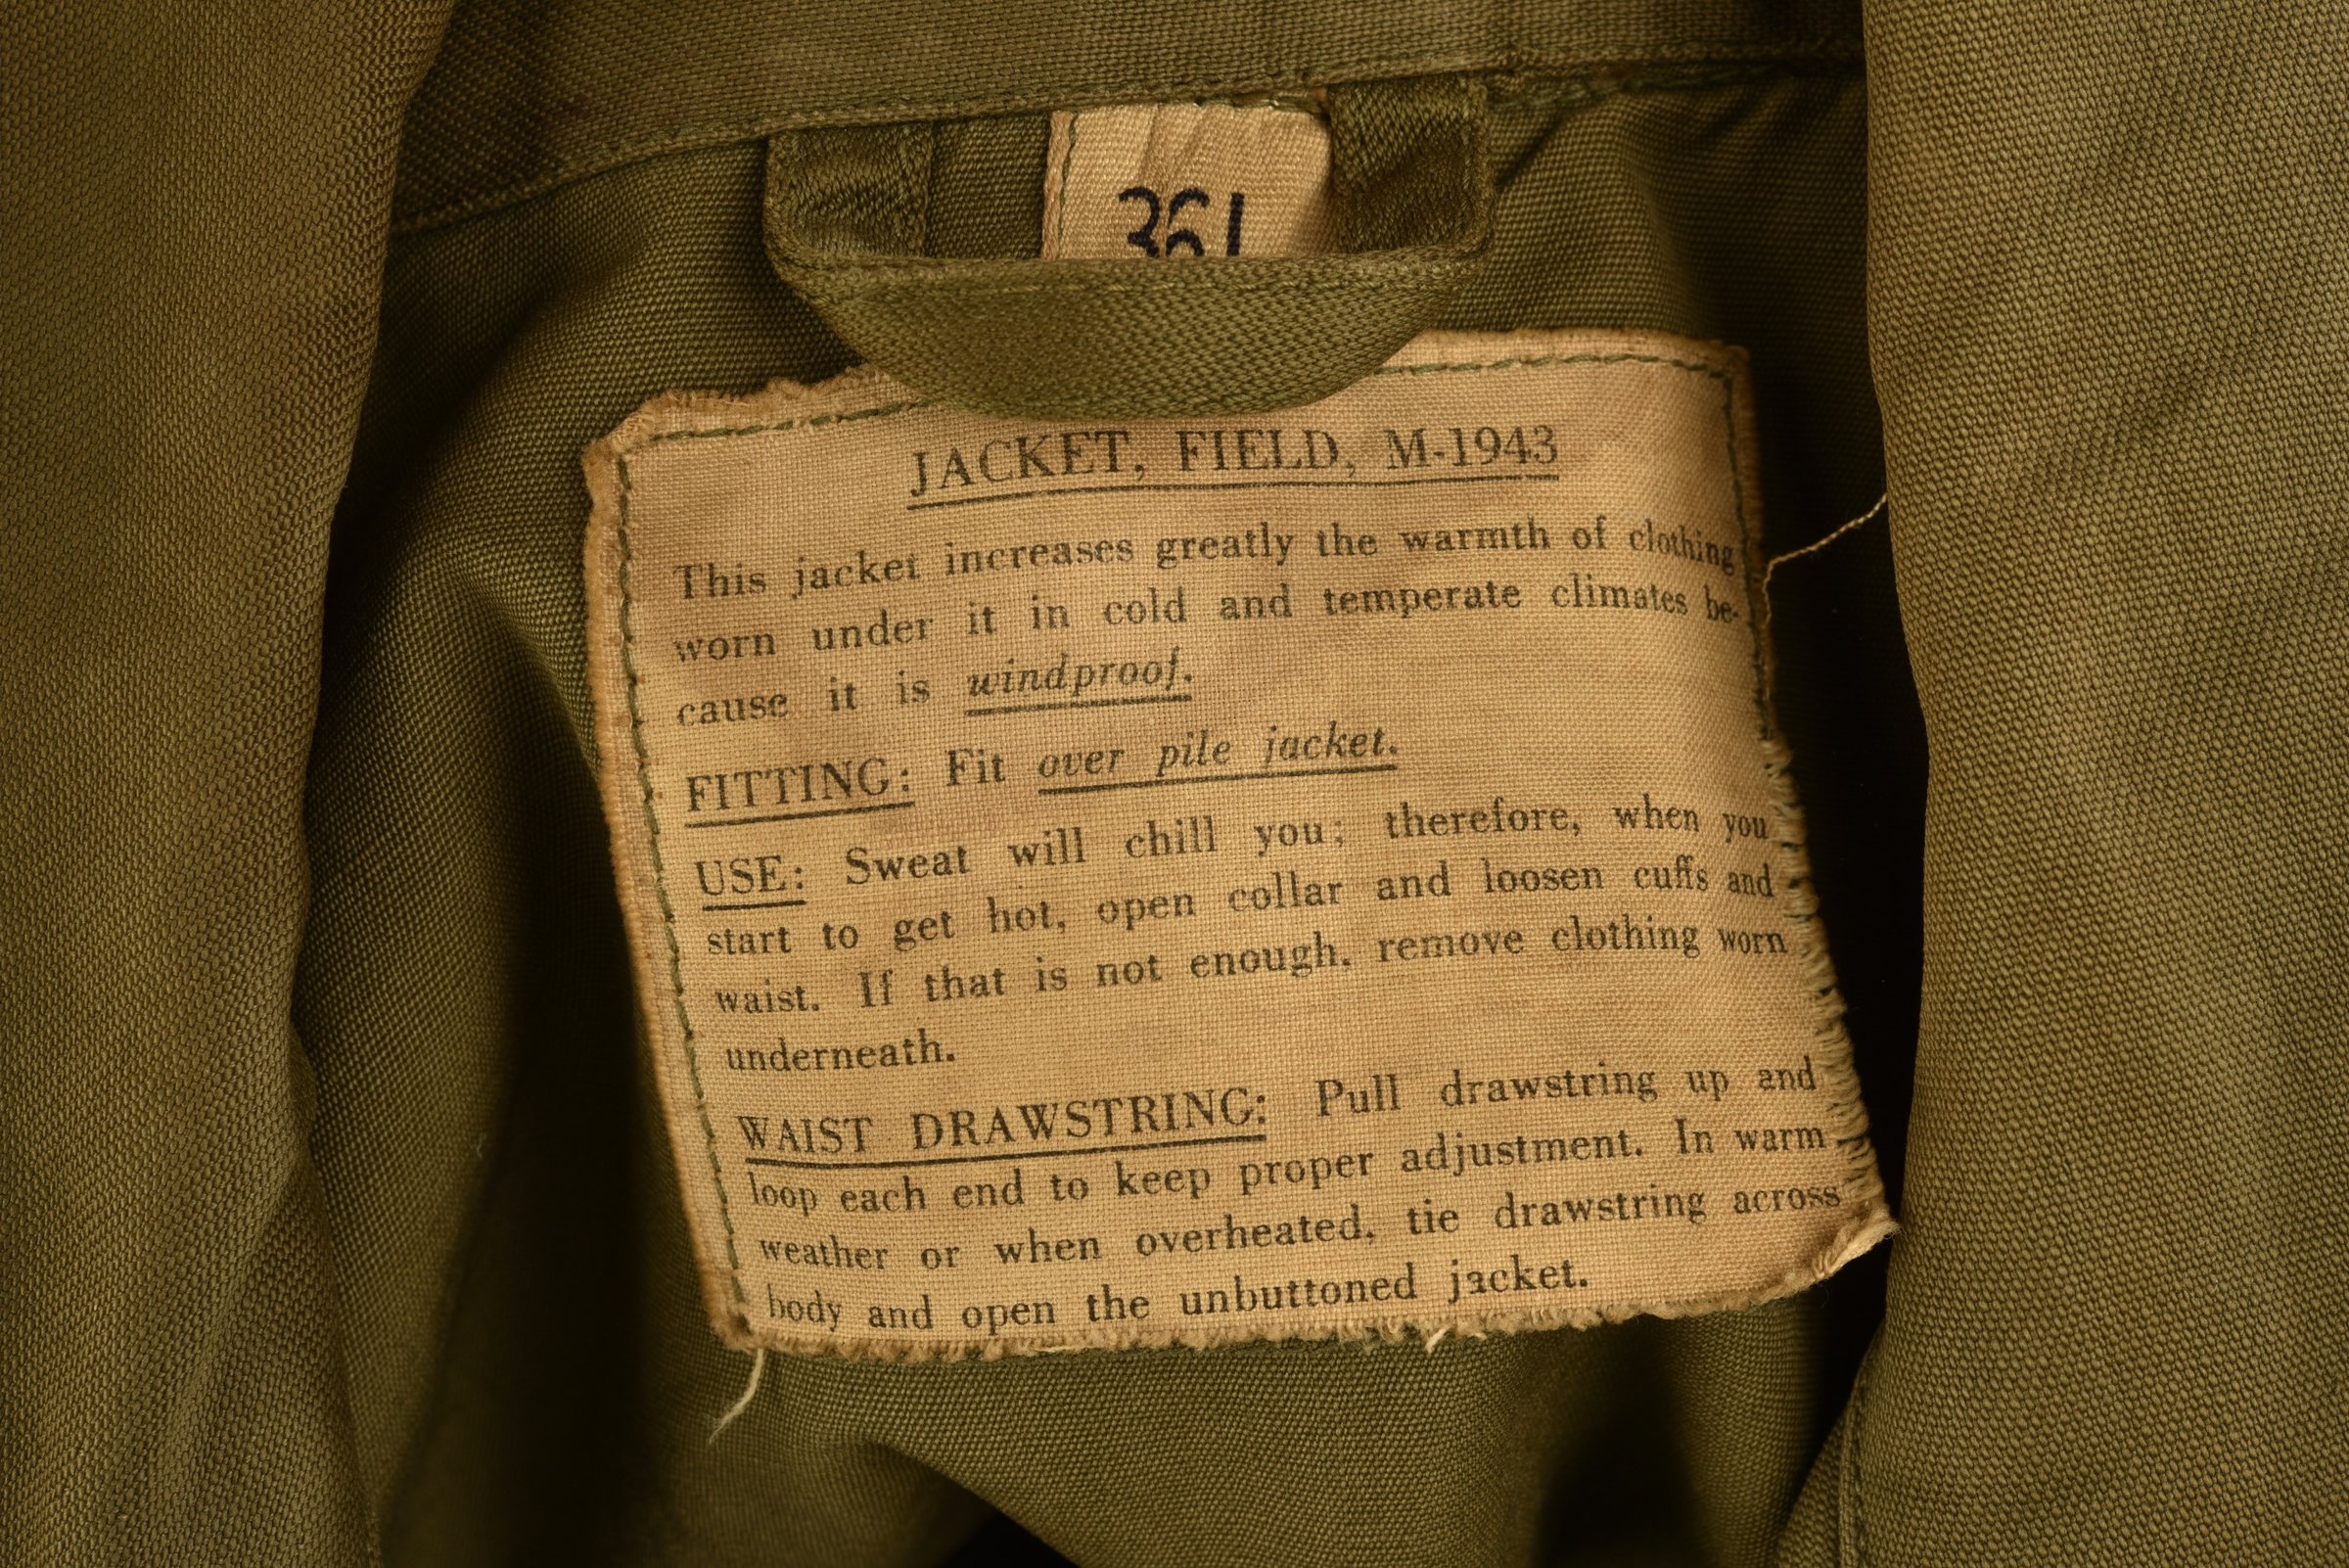 36L
JACKET, FIELD, M-1943
This jacket increases greatly the warmth of clothing
worn under it in cold and temperate climates be-
cause it is windproof.
FITTING: Fit over pile jacket.
USE: Sweat will chill you; therefore, when you
start to get hot, open collar and loosen cuffs and
waist. If that is not enough, remove clothing worn
underneath.
WAIST DRAWSTRING: Pull drawstring up and
loop each end to keep proper adjustment. In warm
weather or when overheated, tie drawstring across
body and open the unbuttoned jacket.